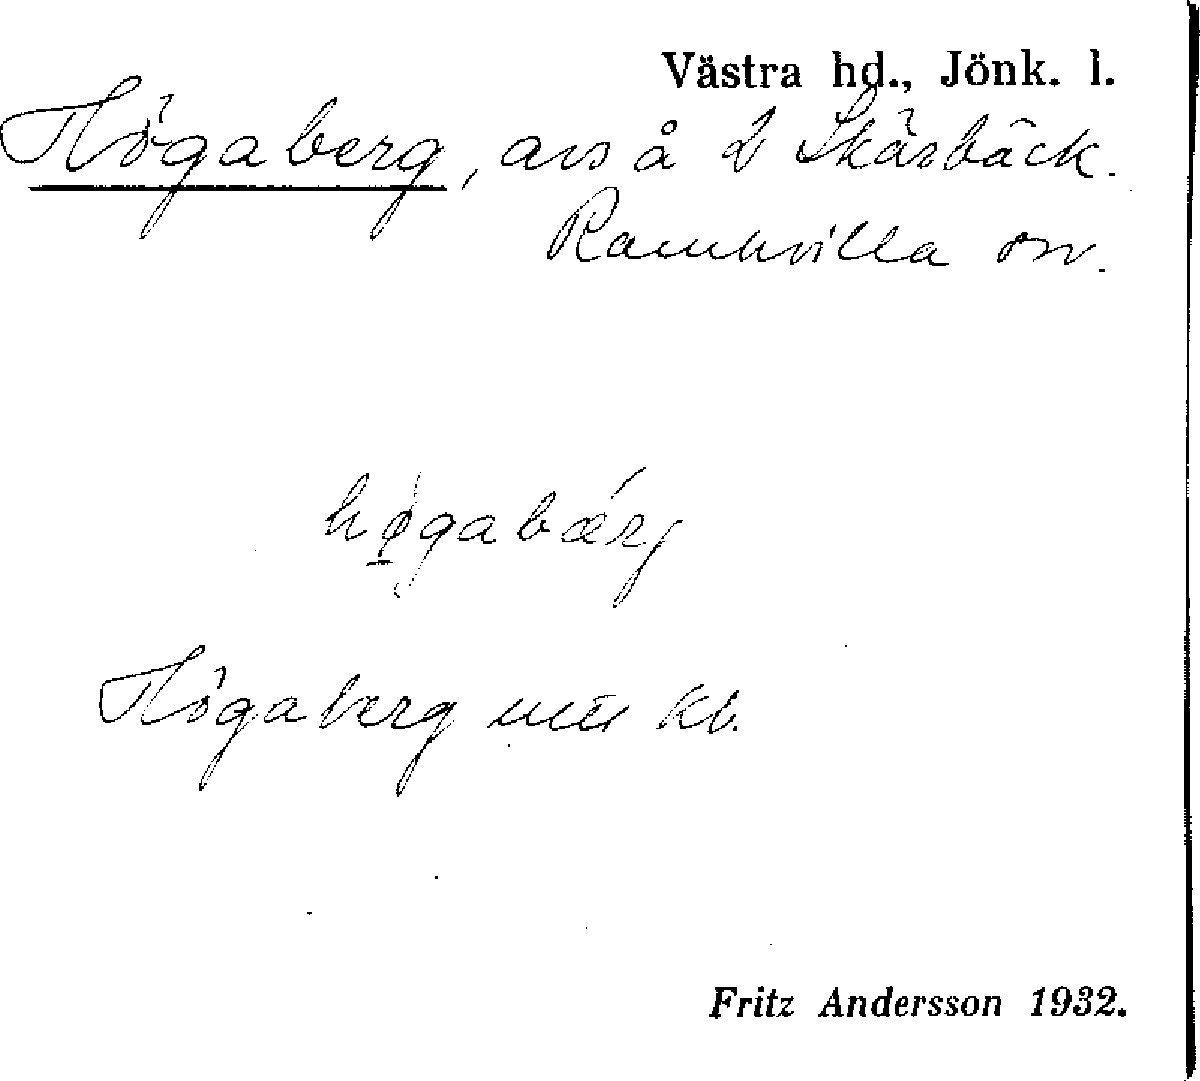 Västra hd., Jönk. l.
Högaberg, avs å Skärbäck.
Ramkvilla sn.
hø̀gabǽrg
Högaberg kb.
Fritz Andersson 1932.